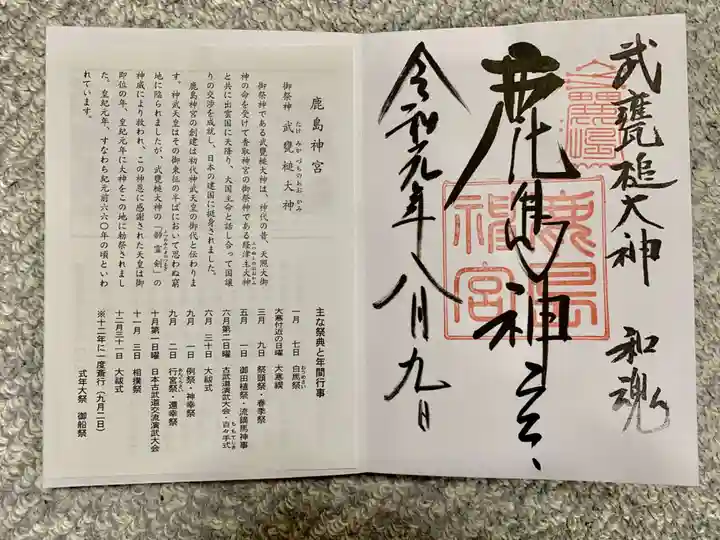 武甕槌大神 和魂
鹿島神宮
鹿島神宮
令和元年八月九日
鹿島神宮
たけ みか づちの おお かみ
御祭神 武甕槌大神
御祭神である武甕槌大神は、神代の昔、天照大御
神の命を受けて香取神宮の御祭神である経津主大神
と共に出雲国に天降り、大国主命と話し合って国譲
りの交渉を成就し、日本の建国に挺身されました。
鹿島神宮の創建は初代神武天皇の御代と伝わりま
す。神武天皇はその御東征の半ばにおいて思わぬ窮
地に陥られましたが、武甕槌大神の「韴霊剣」の
神威により救われ、この神恩に感謝された天皇は御
即位の年、皇紀元年に大神をこの地に勅祭されまし
た。皇紀元年、すなわち紀元前六六〇年の頃といわ
れています。
主な祭典と年間行事
一月 七日 白馬祭
大寒付近の日曜 大寒禊
三月 九日 祭頭祭・春季祭
五月 一日 御田植祭・流鏑馬神事
六月第二日曜 古武道演武大会・百々手式
六月 三十日 大祓式
九月 一日 例祭・神幸祭
九月 二日 行宮祭・還幸祭
十月第一日曜 日本古武道交流演武大会
十一月 三日 相撲祭
十二月三十一日 大祓式
※十二年に一度斎行(九月二日)
式年大祭 御船祭